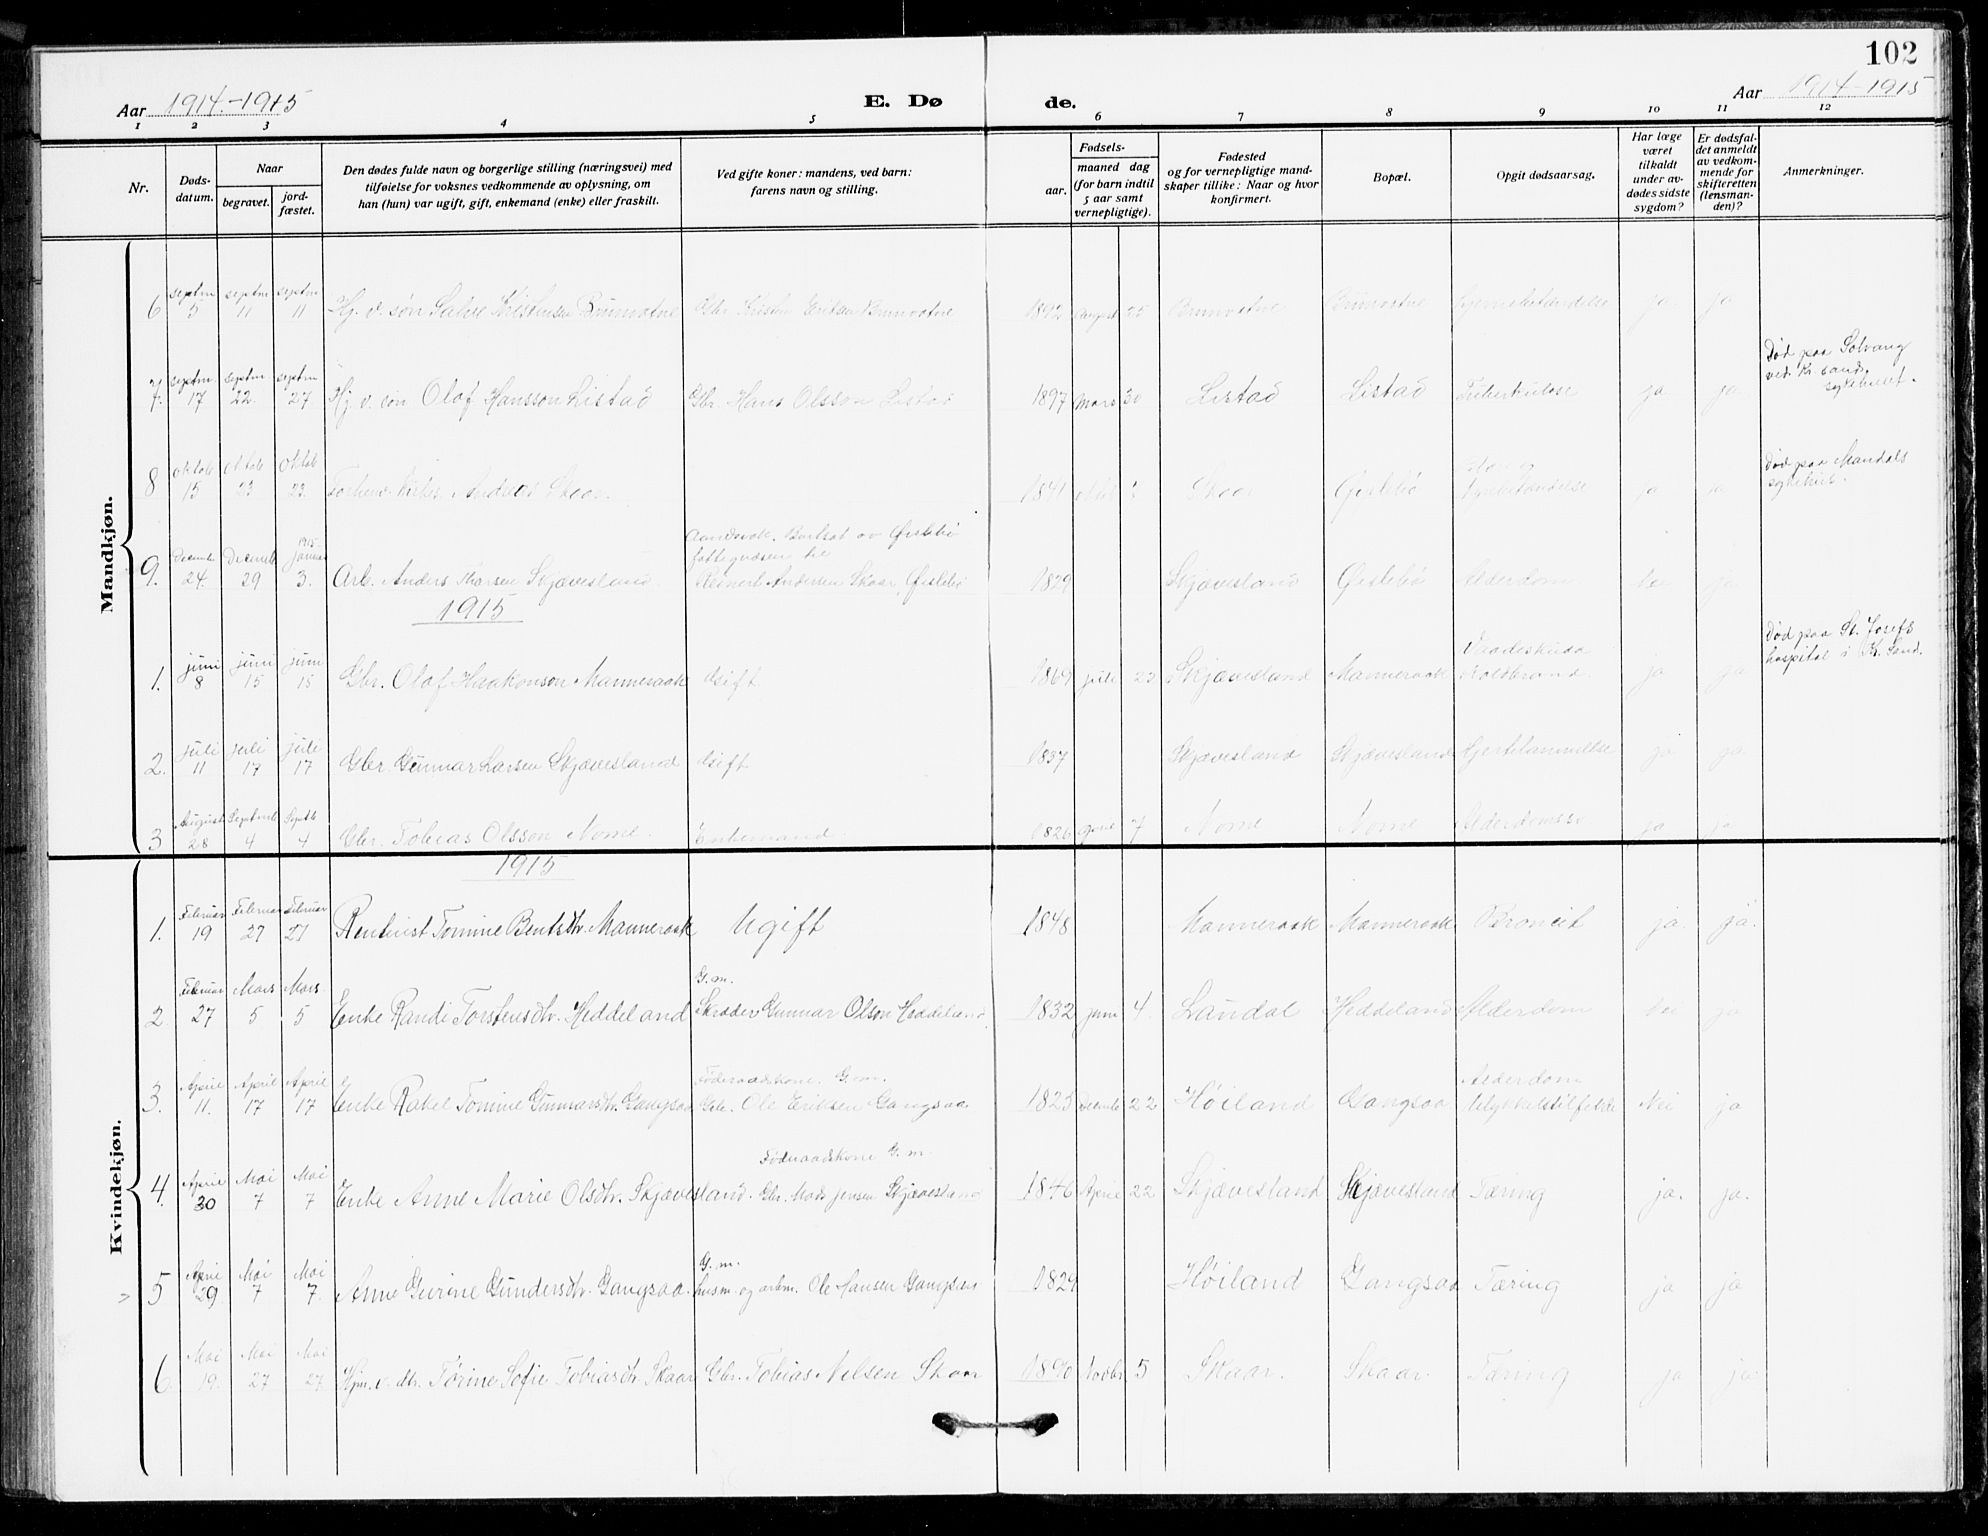 102
Aar 1914.-1915
E. Dø
de.
Aar 1914-1915
1 2 3 4 5 6 7 8 9 10 11 12
Nr.
Døds-
datum.
Naar
begravet.
jord-
fæstet.
Den dødes fulde navn og borgerlige stilling (næringsvei) med
tilføielse for voksnes vedkommende av oplysning, om
han (hun) var ugift, gift, enkemand (enke) eller fraskilt.
Ved gifte koner: mandens, ved barn:
farens navn og stilling.
Fødsels-
aar.
maaned dag
(for barn indtil
5 aar samt
vernepligtige).
Fødested
og for vernepligtige mand-
skaper tillike: Naar og hvor
konfirmert.
Bopæl.
Opgit dødsaarsag.
Har læge
været
tilkaldt
under av-
dødes sidste
sygdom?
Er dødsfal-
det anmeldt
av vedkom-
mende for
skifteretten
(lensman-
den)?
Anmerkninger.
Mandkjøn.
6 septm 5 septm 11 septm 11 Hj. v. søn Salve Kristensen Brunvatne Gbr. Kristen Eriksen Brunvatne 1892 august 25 Brunvatne Brunvatne ja ja
7. septm. 17 septm. 22. septm 27. Hj. v. søn Olaf Hansson Listad Gbr. Hans Olsson Listad 1897 Mars 30 Listad Listad Tuberkulose ja ja
Død paa Solvang
ved Kr. sand.
sykehuset.
8 oktob 15 oktob 23 oktob 23. Andreas Skaar. 1841 Skaar Øislebø ja ja
Død paa Mandals
sykehus.
9. Decemb 24. Decemb 29 1915 Januar 3. Arb. Anders Thorsen Skjævesland. av Øislebø
fattigvæsen
Andersen Skaar, Øislebø 1829 Skjævesland Øislebø Alderdom Nei ja
1915
1. juni 8 juni 15 juni 15 Gbr. Olaf Haakonson Manneraak Gift 1869 juli 23 Skjævesland Manneraak Vaadeskudd
Koldbrand. ja ja
Død paa St. Josefs
hospital i Kr. Sand.
2. juli 11 juli 17 juli 17 Gbr. Gunnar Larsen Skjævesland Gift 1837 Skjævesland Skjævesland Hjertelammelse ja ja
3 August 28 Septemb 4 Septb 4 Gbr. Tobias Olsson Nome. Enkemand. 1826 7 Nome Nome ja ja
Kvindekjøn.
1915
1. Februar 19 Februar 27 Februar 27 Rentenist Tomine Bentsdtr. Manneraak Ugift 1848 Manneraak Manneraak Broncit ja. ja.
2 Februar 27 Mars 5 Mars 5 Enke Randi Torstensdtr. Heddeland G. m.
Skræder Gunnar Olson Heddeland 1832 juni 4. Laudal Heddeland Alderdom Nei ja
3. April 11. April 17 April 17 Enke Rakel Tomine Gunnarsdtr. Gangsaa Føderaadskone. G. m.
Gbr. Ole Eriksen Gangsaa 1823 Decemb 22 Høiland Gangsaa Alderdom
Ulykkelstilfelde Nei ja
4. April 30 Mai 7 Mai 7 Enke Anne Marie Olsdtr. Skjævesland. Føderaadskone G. m.
Gbr. Mads Jensen Skjævesland 1846 April 22 Skjævesland Skjævesland Tæring ja. ja.
5 April 29 Mai 7 Mai 7. Anne Gurine Gundersdtr. Gangsaa. G. m.
husm. og arbm. Ole Hansen Gangsaa 1829 Høiland Gangsaa Tæring ja ja
6. Mai 19. Mai 27 Mai 27 Hjm. v. dtr. Tørine Sofie Tobiasdtr. Skaar Gbr. Tobias Nilsen Skaar 1890 Novbr 5 Skaar. Skaar. Tæring ja ja